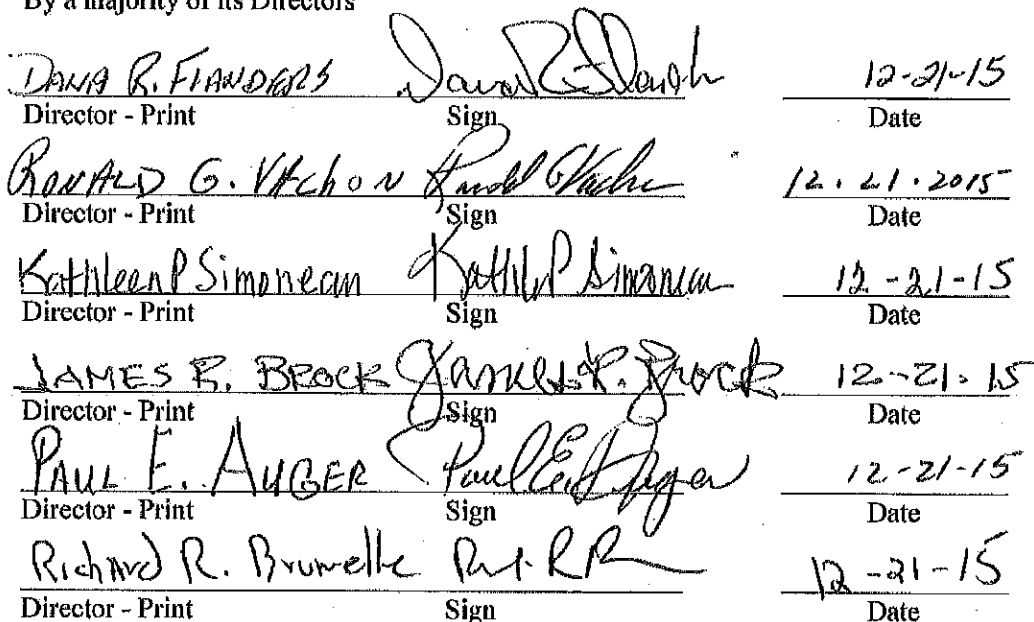 By a majority of its Directors
DANA R. FLANDERS 12-21-15
Director - Print Sign Date
RONALD G. VAChON Ronald G Vachon 12.21.2015
Director - Print Sign Date
Kathleen P Simoneau Kathleen P Simoneau 12-21-15
Director - Print Sign Date
JAMES R. BROCK James R. Brock 12-21-15
Director - Print Sign Date
PAUL E. AUGER Paul E. Auger 12-21-15
Director - Print Sign Date
Richard R. Brunelle 12-21-15
Director - Print Sign Date